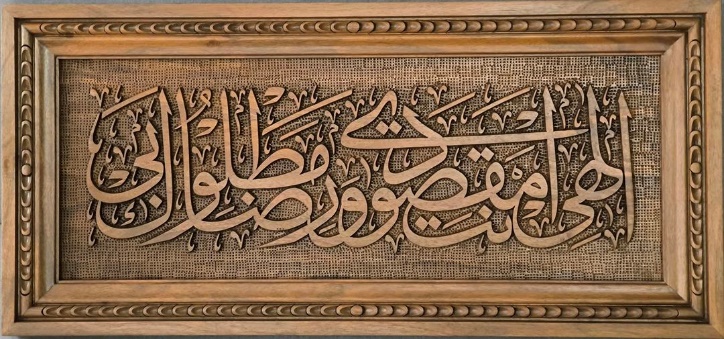 الهي انت مقصودي ورضاك مطلوبي